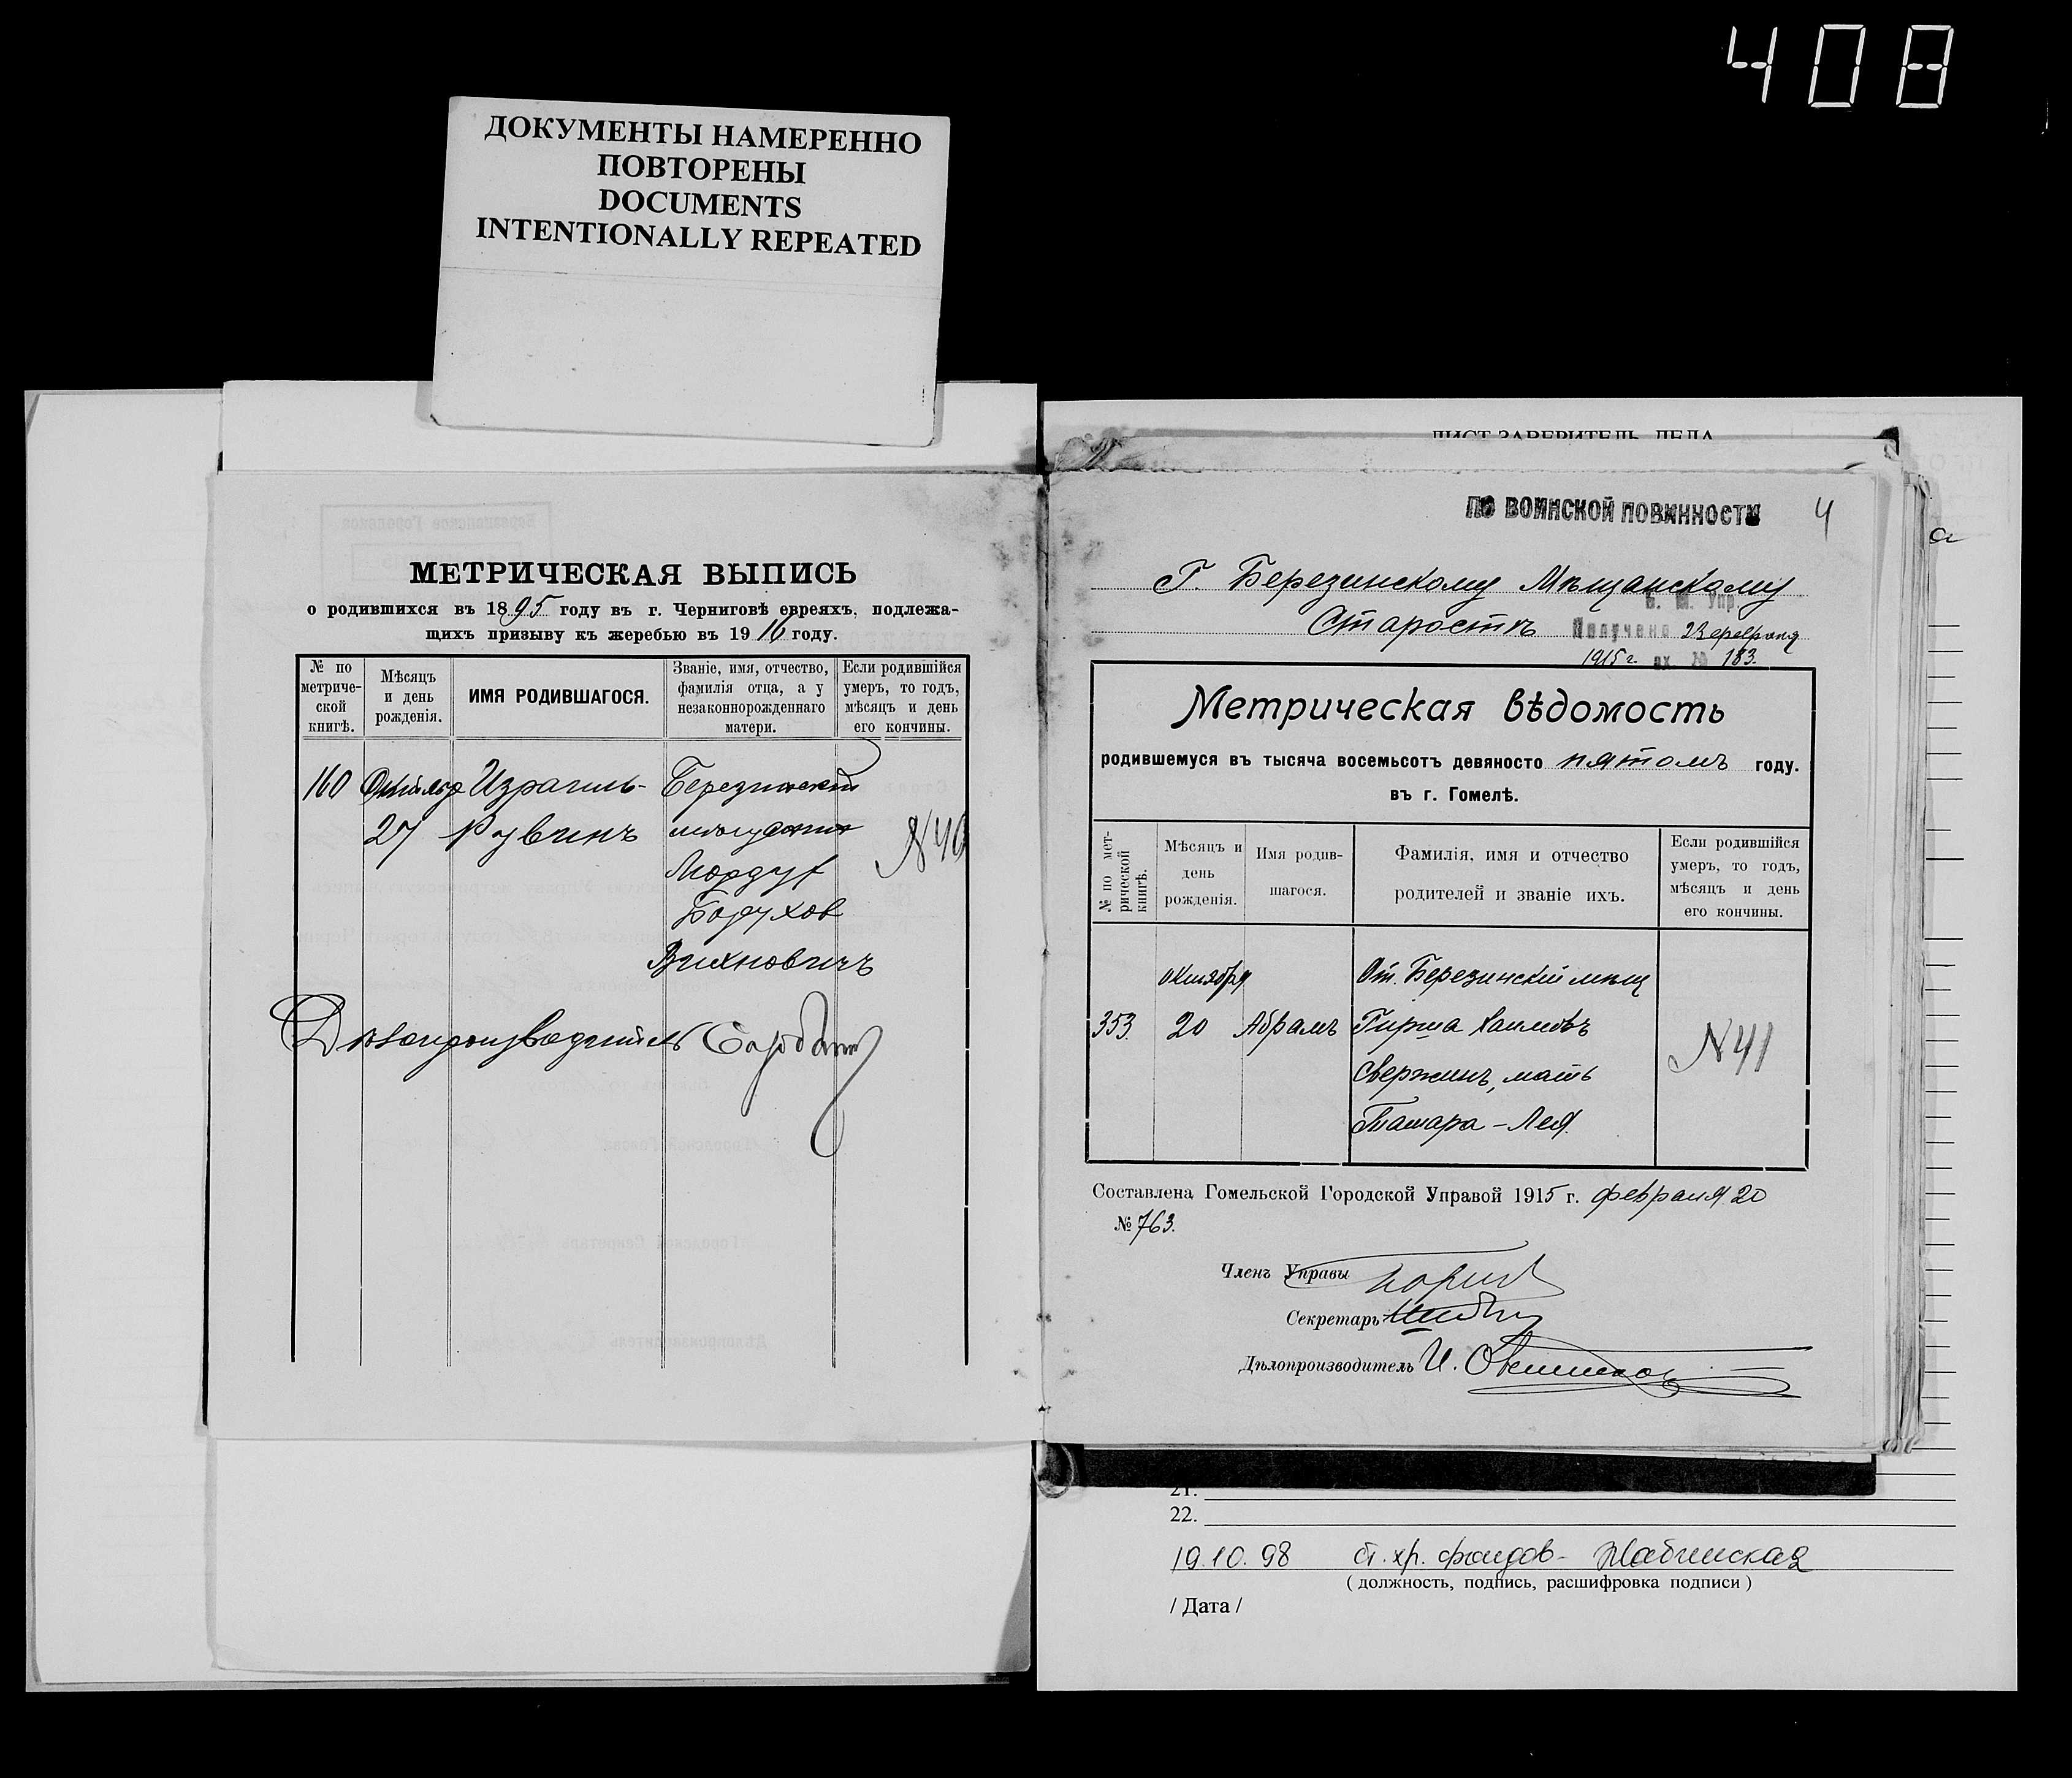 408
ДОКУМЕНТЫ НАМЕРЕННО
ПОВТОРЕНЫ
DOCUMENTS
INTENTIONALLY REPEATED
МЕТРИЧЕСКАЯ ВЫПИСЬ
о родившихся въ 1895 году въ г. Черниговѣ евреяхъ, подлежа-
щихъ призыву къ жеребью въ 1916 году.
№ по метриче-ской книгѣ.
Мѣсяцъ и день рожденія.
ИМЯ РОДИВШАГОСЯ.
Званіе, имя, отчество, фамилія отца, а у незаконнорожденнаго матери.
Если родившійся умеръ, то годъ, мѣсяцъ и день его кончины.
160 Октября Израиль- Березинскій
27 Рувинъ
Мордух
Борухов
Вихновичъ
N 40
Дѣлопроизводитель
ЛИСТ-ЗАВЕРИТЕЛЬ ДЕЛА
ПО ВОИНСКОЙ ПОВИННОСТИ 4
Г. Березинскому Мѣщанскому
Старостѣ
Б. М. Упр.
Получено 23 февраля
1915 г. вх. № 183.
Метрическая вѣдомость
родившемуся въ тысяча восемьсотъ девяносто пятомъ году.
въ г. Гомелѣ.
№ по мет-рической книгѣ.
Мѣсяцъ и день рожденія.
Имя родив-шагося.
Фамилія, имя и отчество родителей и званіе ихъ.
Если родившійся умеръ, то годъ, мѣсяцъ и день его кончины.
октября От. Березинскій мѣщ
353. 20 Абрамъ Гирша Хаимовъ
Свержинъ, мать
Тамара-Лея.
N 41
Составлена Гомельской Городской Управой 1915 г. февраля 20
№ 763.
Членъ Управы
Секретарь
Дѣлопроизводитель И.
21.
22.
19.10.98 ст. хр. фондов-
( должность, подпись, расшифровка подписи )
/ Дата /